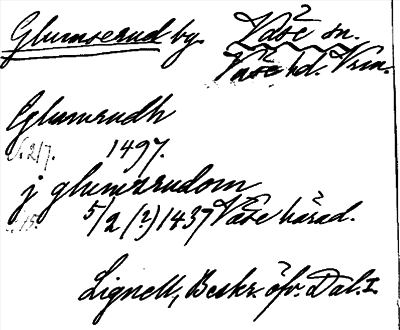 Glumserud by. Väse sn.
Väse hd. Vrm.
Glumrudh
s. 217. 1497.
j glumsrudom
5/2 (?) 1437 Väse härad.
Lignell, Beskr. öfv. Dal. I.